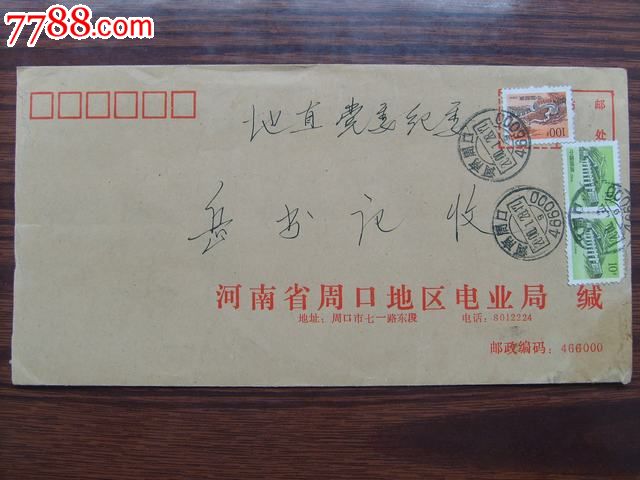 7788.com
地直党委纪委
岳书记 收
邮
处
100
10
河南周口
466000
河南周口
466000
河南省周口地区电业局 缄
地址：周口市七一路东段 电话：8012224
邮政编码：466000